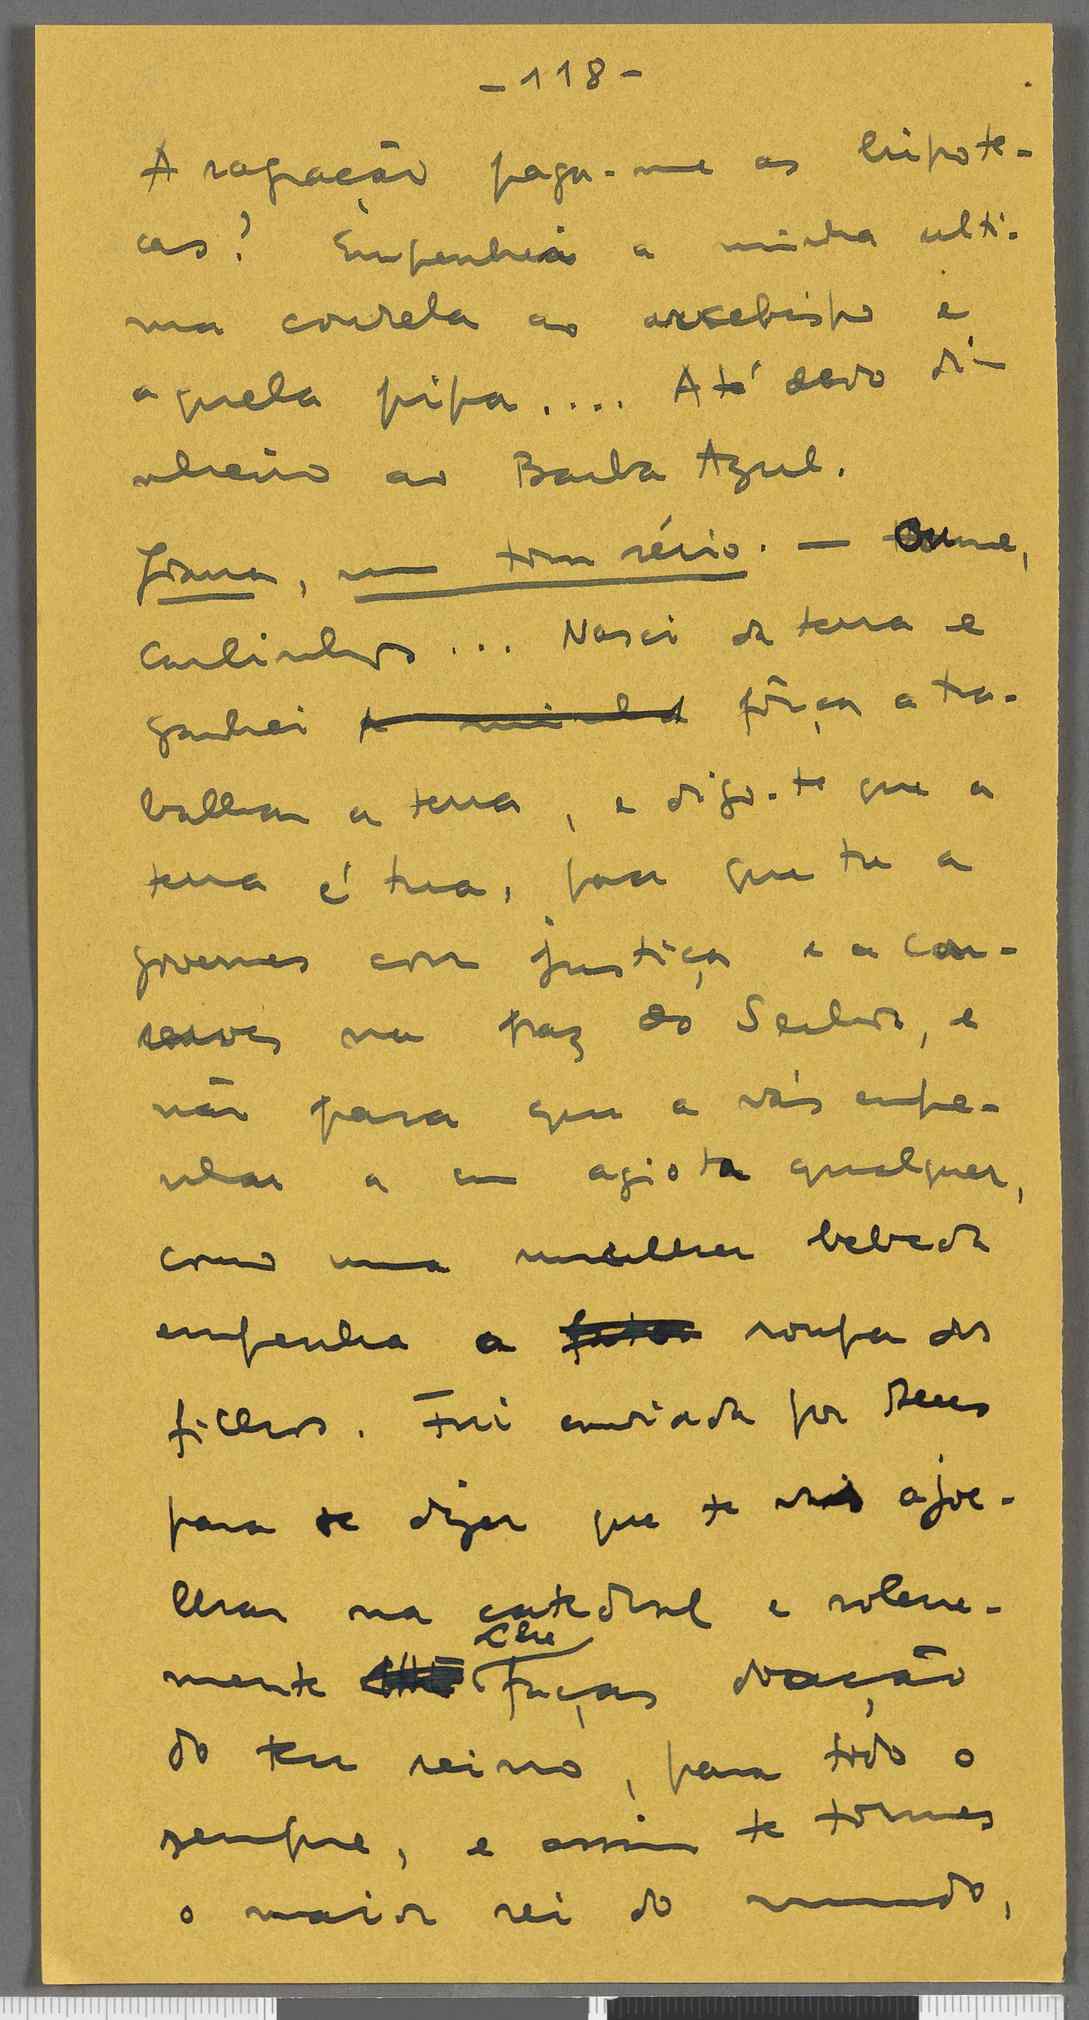 - 118 -
A sagração paga-me as hipote-
cas? Empenhei a minha ulti-
ma courela ao arcebispo e
aquela pipa.... Até devo di-
nheiro ao Barba Azul.
Joana, num tom sério. — Ouve,
Carlinhos... Nasci da terra e
ganhei a minha fôrça a tra-
balhar a terra, e digo-te que a
terra é tua, para que tu a
governes com justiça e a con-
serves na paz do Senhor, e
não para que a vás empe-
nhar a um agiota qualquer,
como uma mulher bebeda
empenha a fatos roupa dos
filhos. Fui enviada por Deus
para te dizer que te vás ajoe-
lhar na catedral e solene-
mente lhe faças doação
do teu reino, para todo o
sempre, e assim te tornes
o maior rei do mundo,